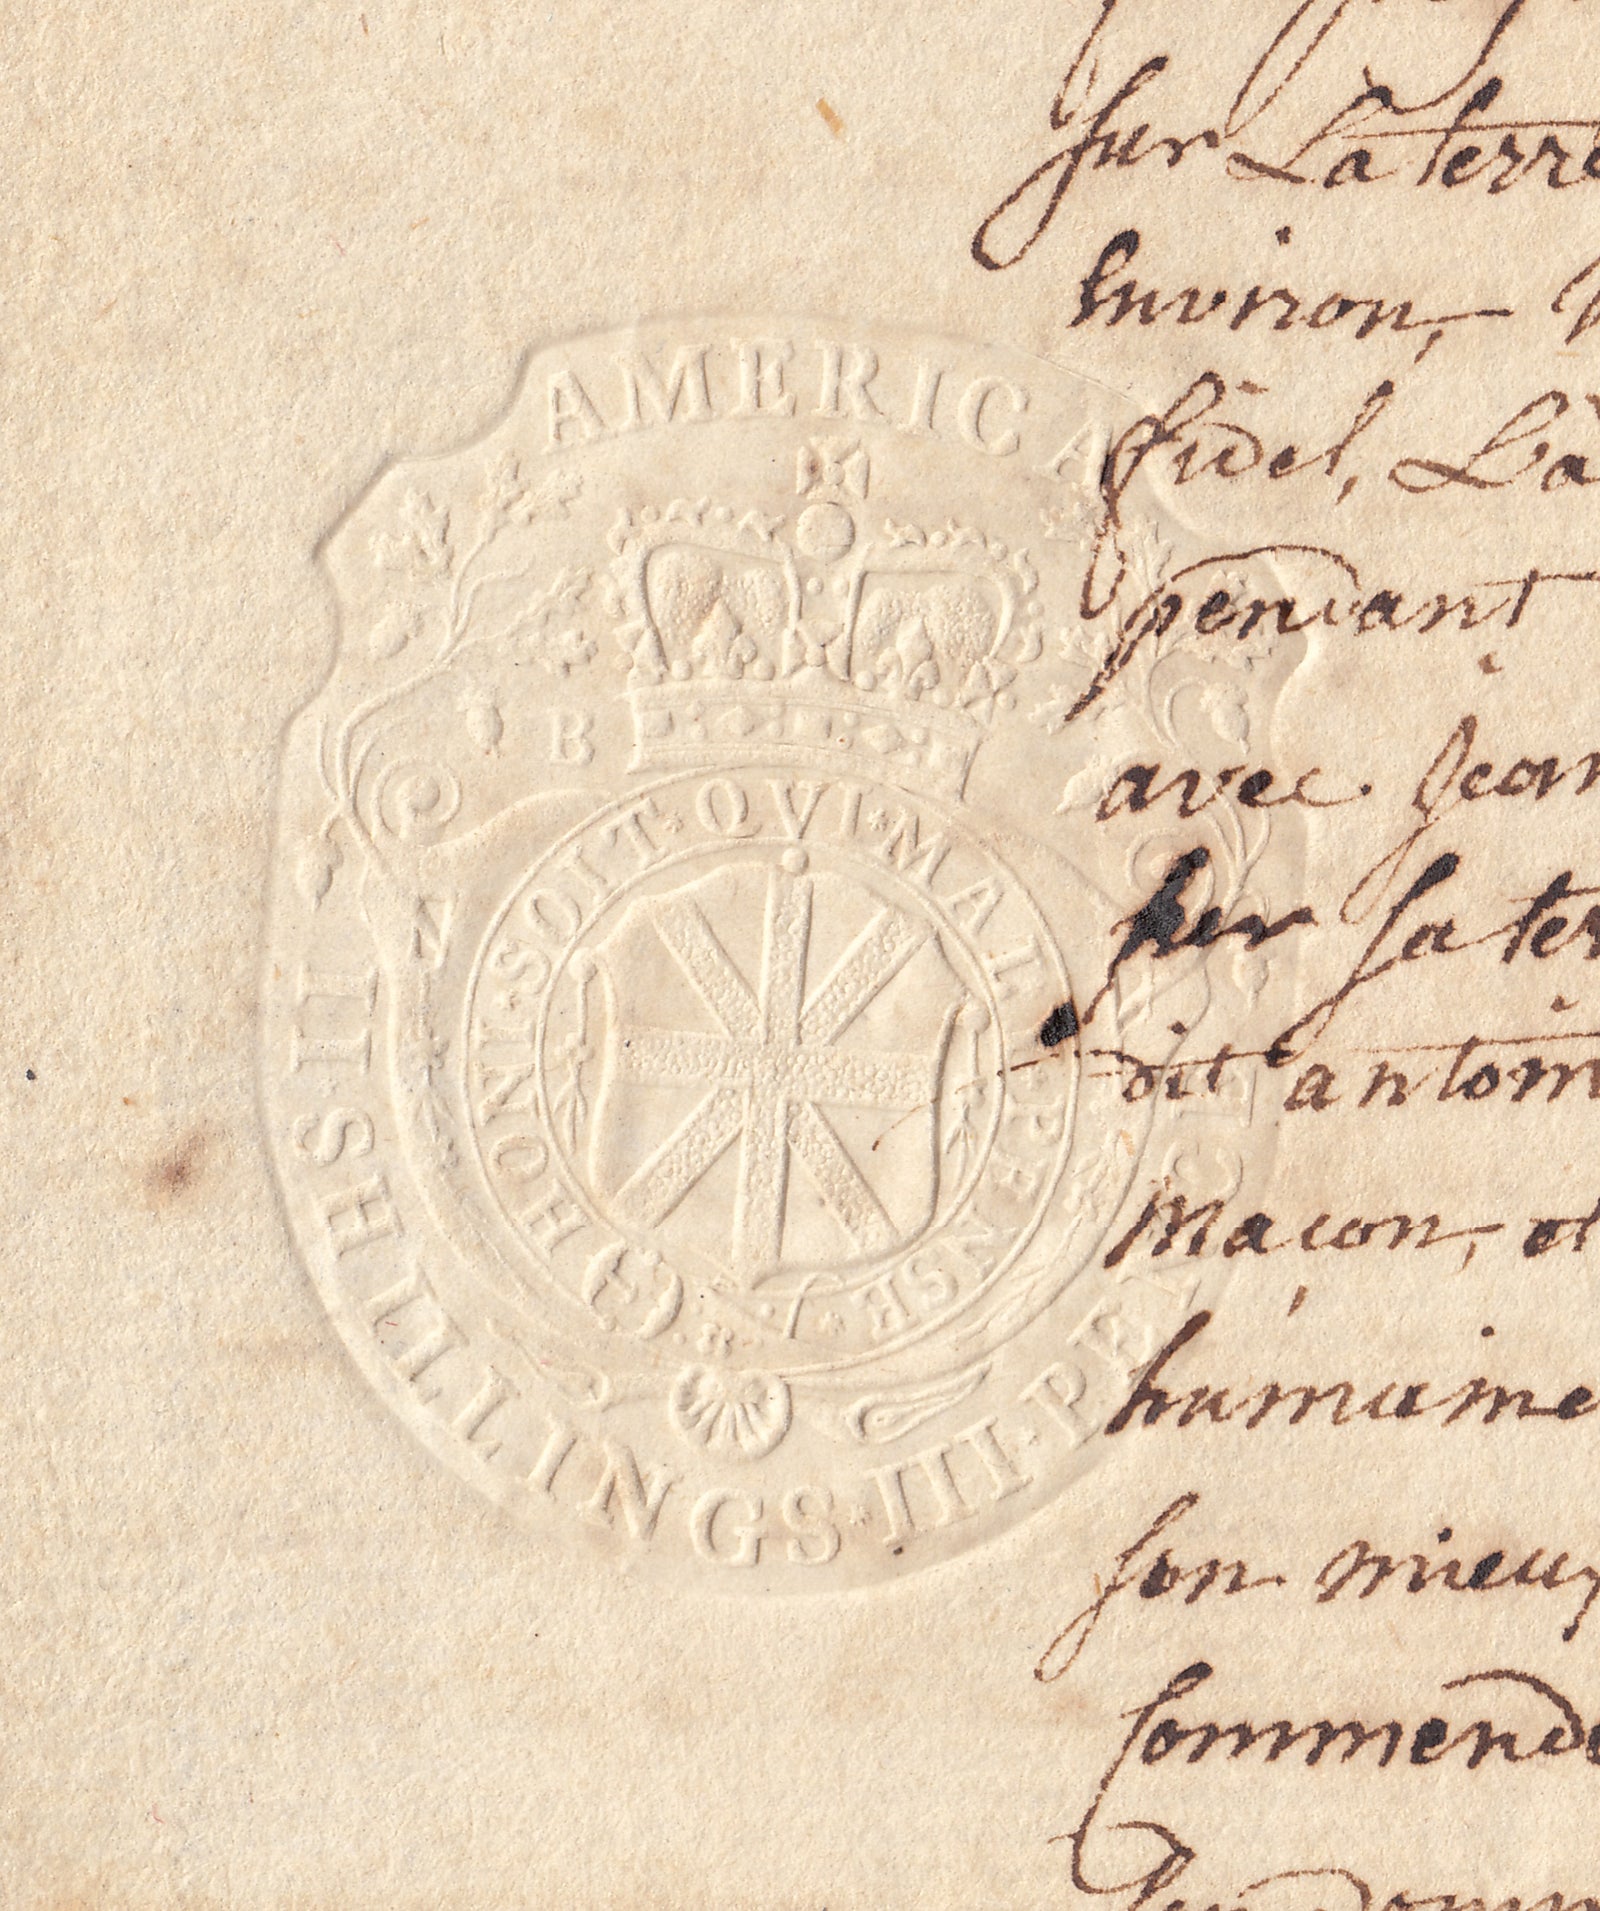 AMERICA
B
HONI · SOIT · QVI · MAL · Y · PENSE
II · SHILLINGS · III · PENCE
sur La terre
Environ,
fidel, La
pendant
avec Jean
sur sa ter
dit antoin
Maçon, et
humaine
son mieux
commende